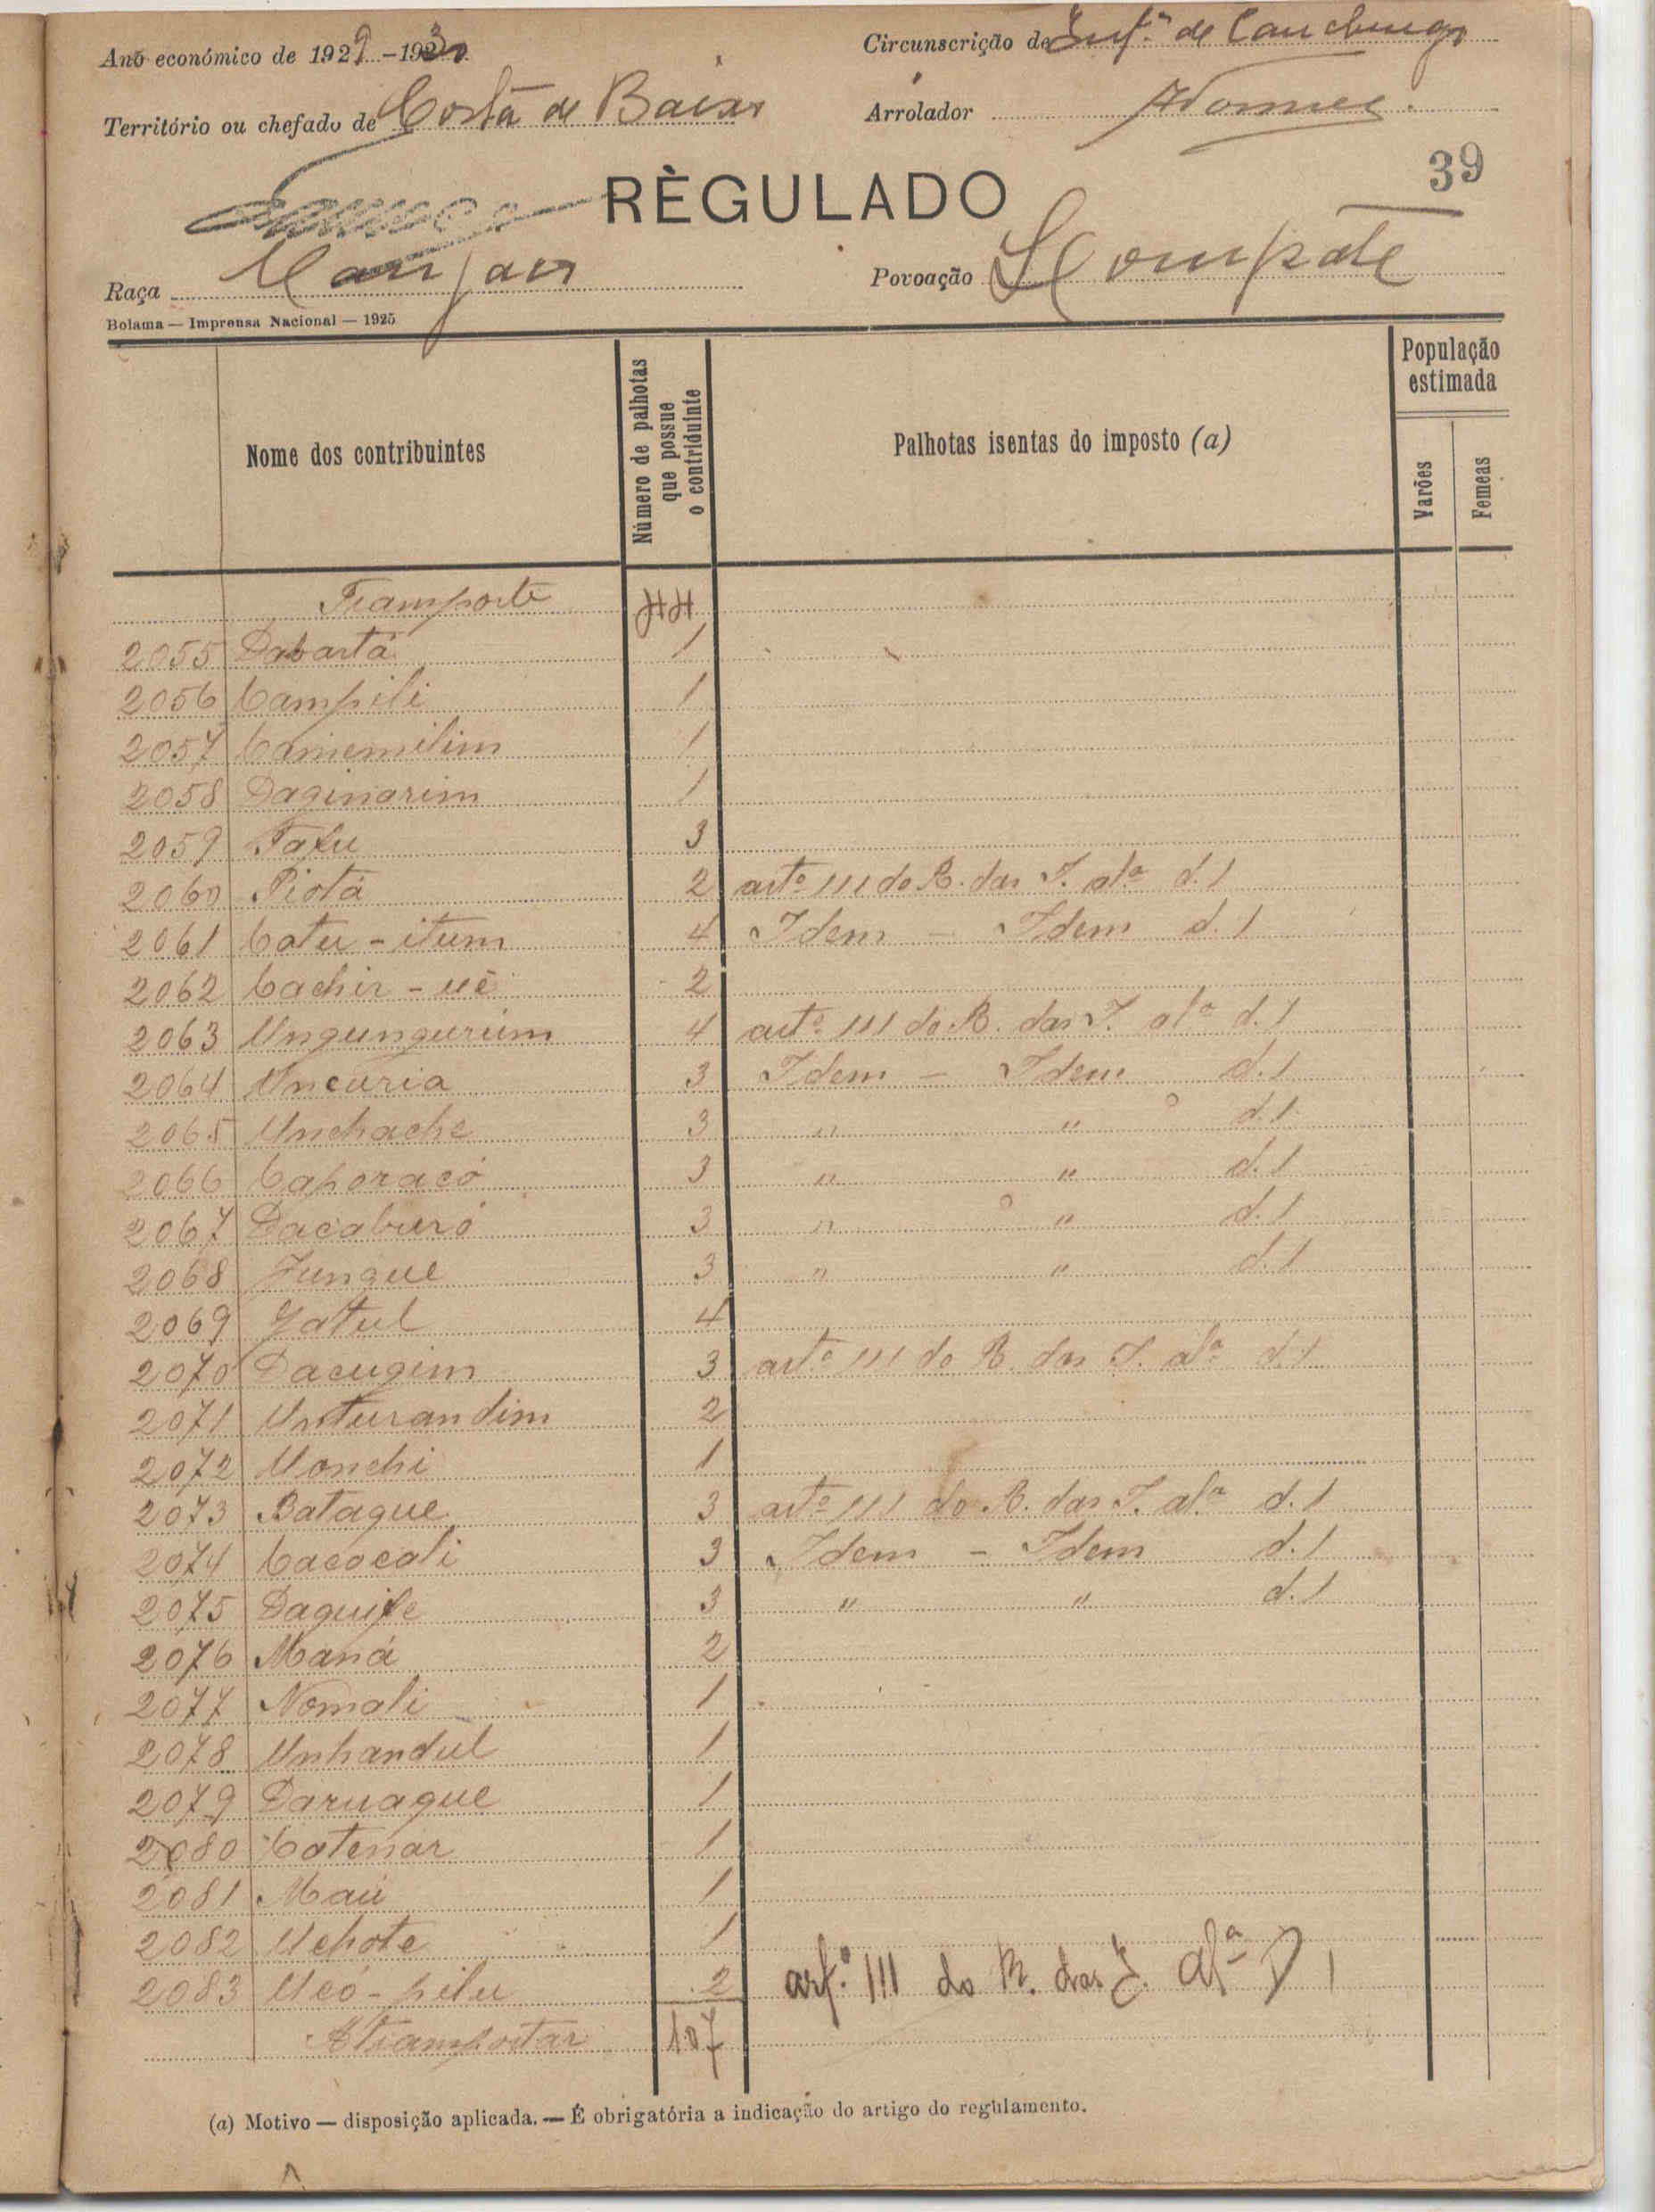 Ano económico de 1929-1930
Circunscrição de Inf.ª de Canchungo
Território ou chefado de Costa de Baixo
Arrolador
39
RÈGULADO
Raça Manjaca
Povoação
Bolama — Imprensa Nacional — 1925
Nome dos contribuintes
Número de palhotas que possue o contriduinte
Palhotas isentas do imposto (a)
População estimada
Varões
Femeas
Transporte 44
2055 Dabartá 1
2056 Campili 1
2057 Caniemilim 1
2058 Daginarim 1
2059 Tafu 3
2060 Piotá 2 artº III do R. das I. alª d. 1
2061 Catu-itum 4 Idem - Idem d. 1
2062 Cachir-uê 2
2063 Ungungurum 4 artº III do R. das I. alª d. 1
2064 Uncuria 3 Idem - Idem d. 1
2065 Unchache 3 " " d. 1
2066 Caporacó 3 " " d. 1
2067 Dacaburó 3 " " d. 1
2068 Jungue 3 " " d. 1
2069 Jatul 4
2070 Dacugim 3 artº III do R. das I. alª d. 1
2071 Unturandim 2
2072 Monchi 1
2073 Bataque 3 artº III do R. das I. alª d. 1
2074 Cacocali 3 Idem - Idem d. 1
2075 Daguife 3 " " d. 1
2076 Maná 2
2077 Nomali 1
2078 Unhandul 1
2079 Daruaque 1
2080 Catenar 1
2081 Maú 1
2082 Uchote 1
2083 Ucó-pilu 2 artº III do R. das I. alª D 1
A transportar 107
(a) Motivo — disposição aplicada. — É obrigatória a indicação do artigo do regulamento.